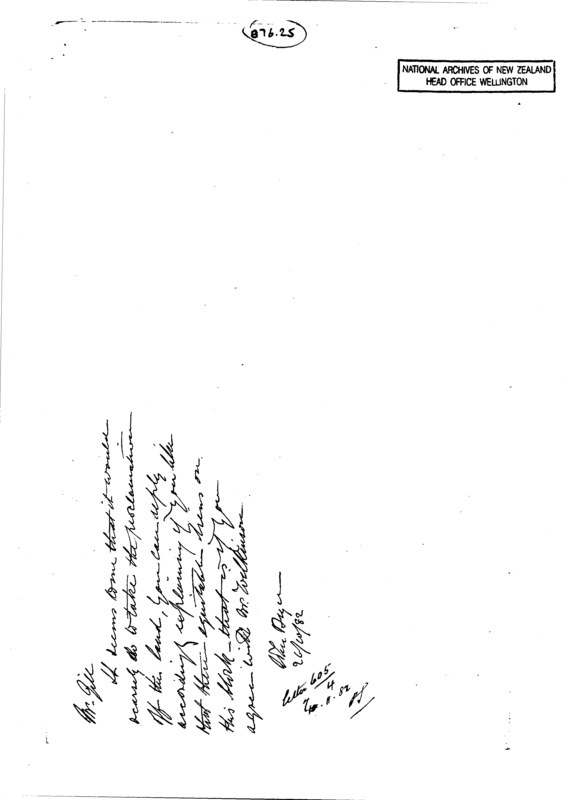 876.25
NATIONAL ARCHIVES OF NEW ZEALAND
HEAD OFFICE WELLINGTON
Mr. Gill
It seems to me that it would
scarcely do to take the proclamation
off this land, you can reply
accordingly explaining if you like
that there equitable liens on
this block — that is if you
agree with Mr. Wilkinson
26/10/82
letter 605
4
.82